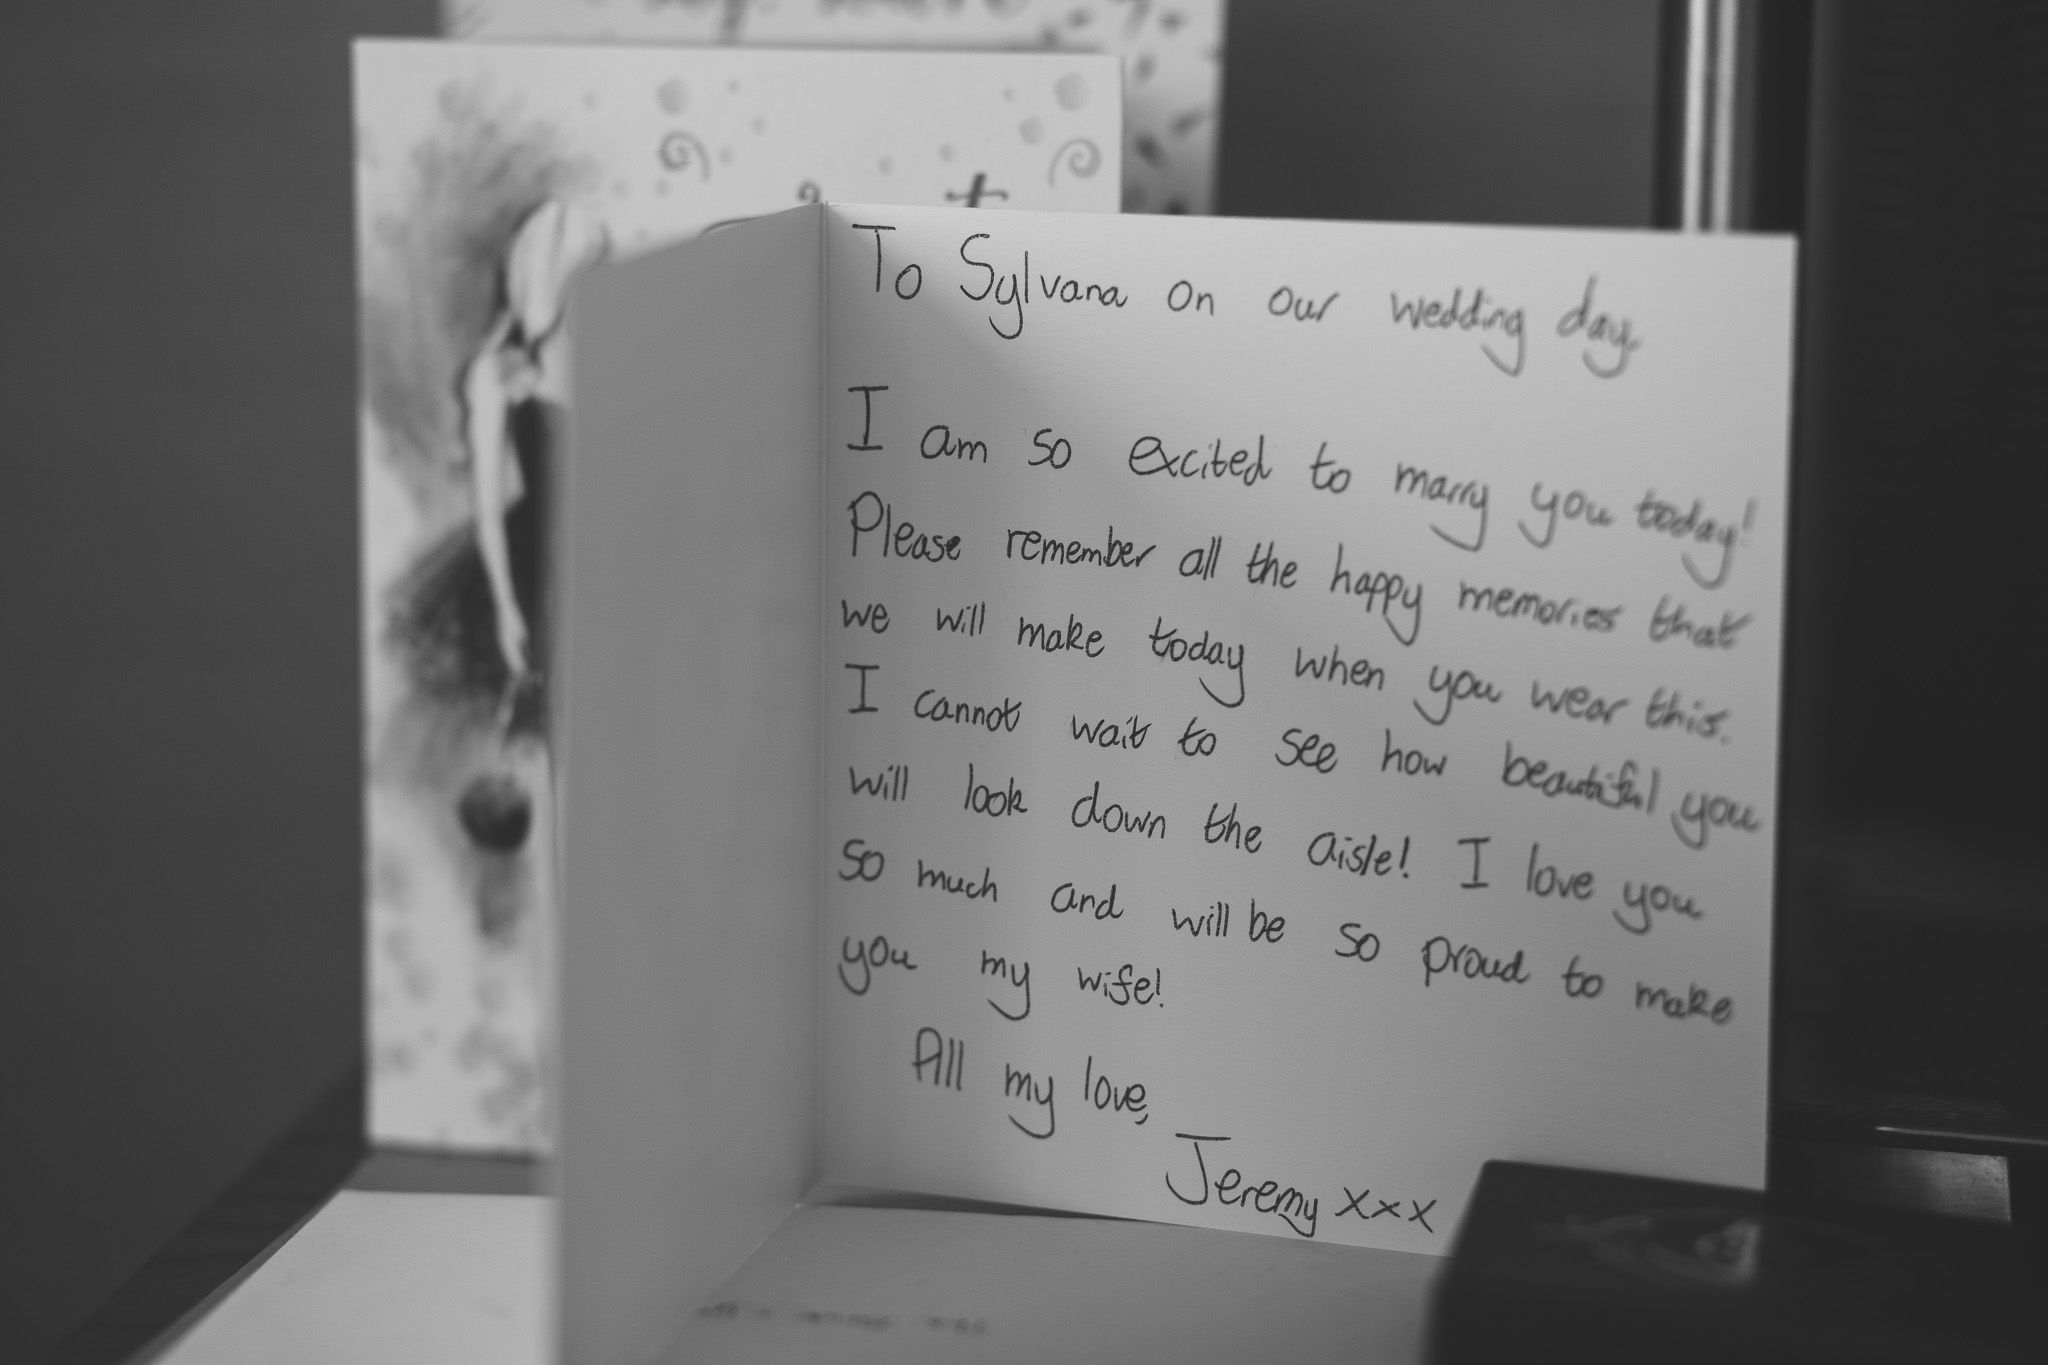 To Sylvana on our wedding day.
I am so excited to marry you today!
Please remember all the happy memories that
we will make today when you wear this.
I cannot wait to see how beautiful you
will look down the aisle! I love you
so much and will be so proud to make
you my wife!
All my love,
Jeremy xxx